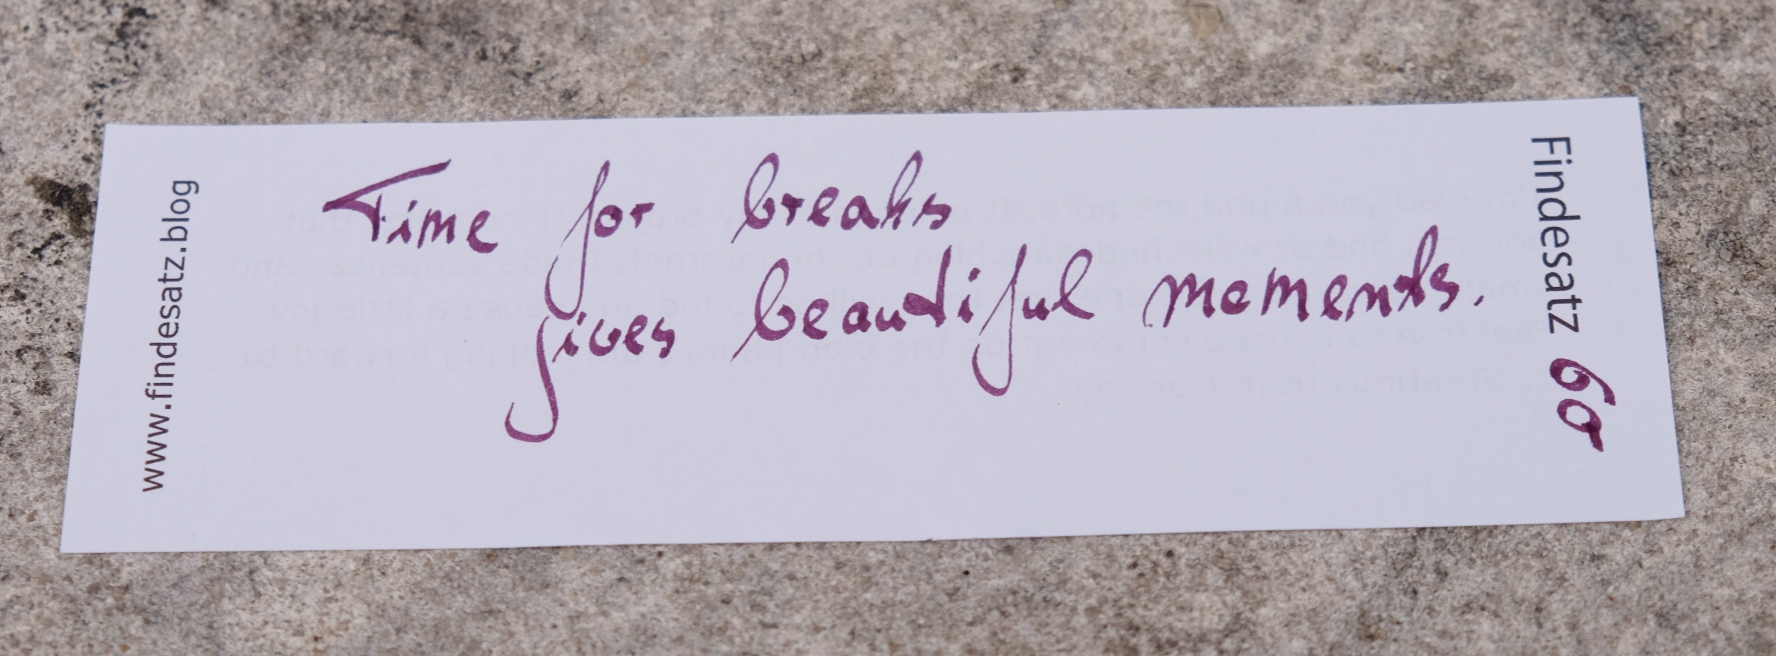 www.findesatz.blog
Time for breaks
gives beautiful moments.
Findesatz 60